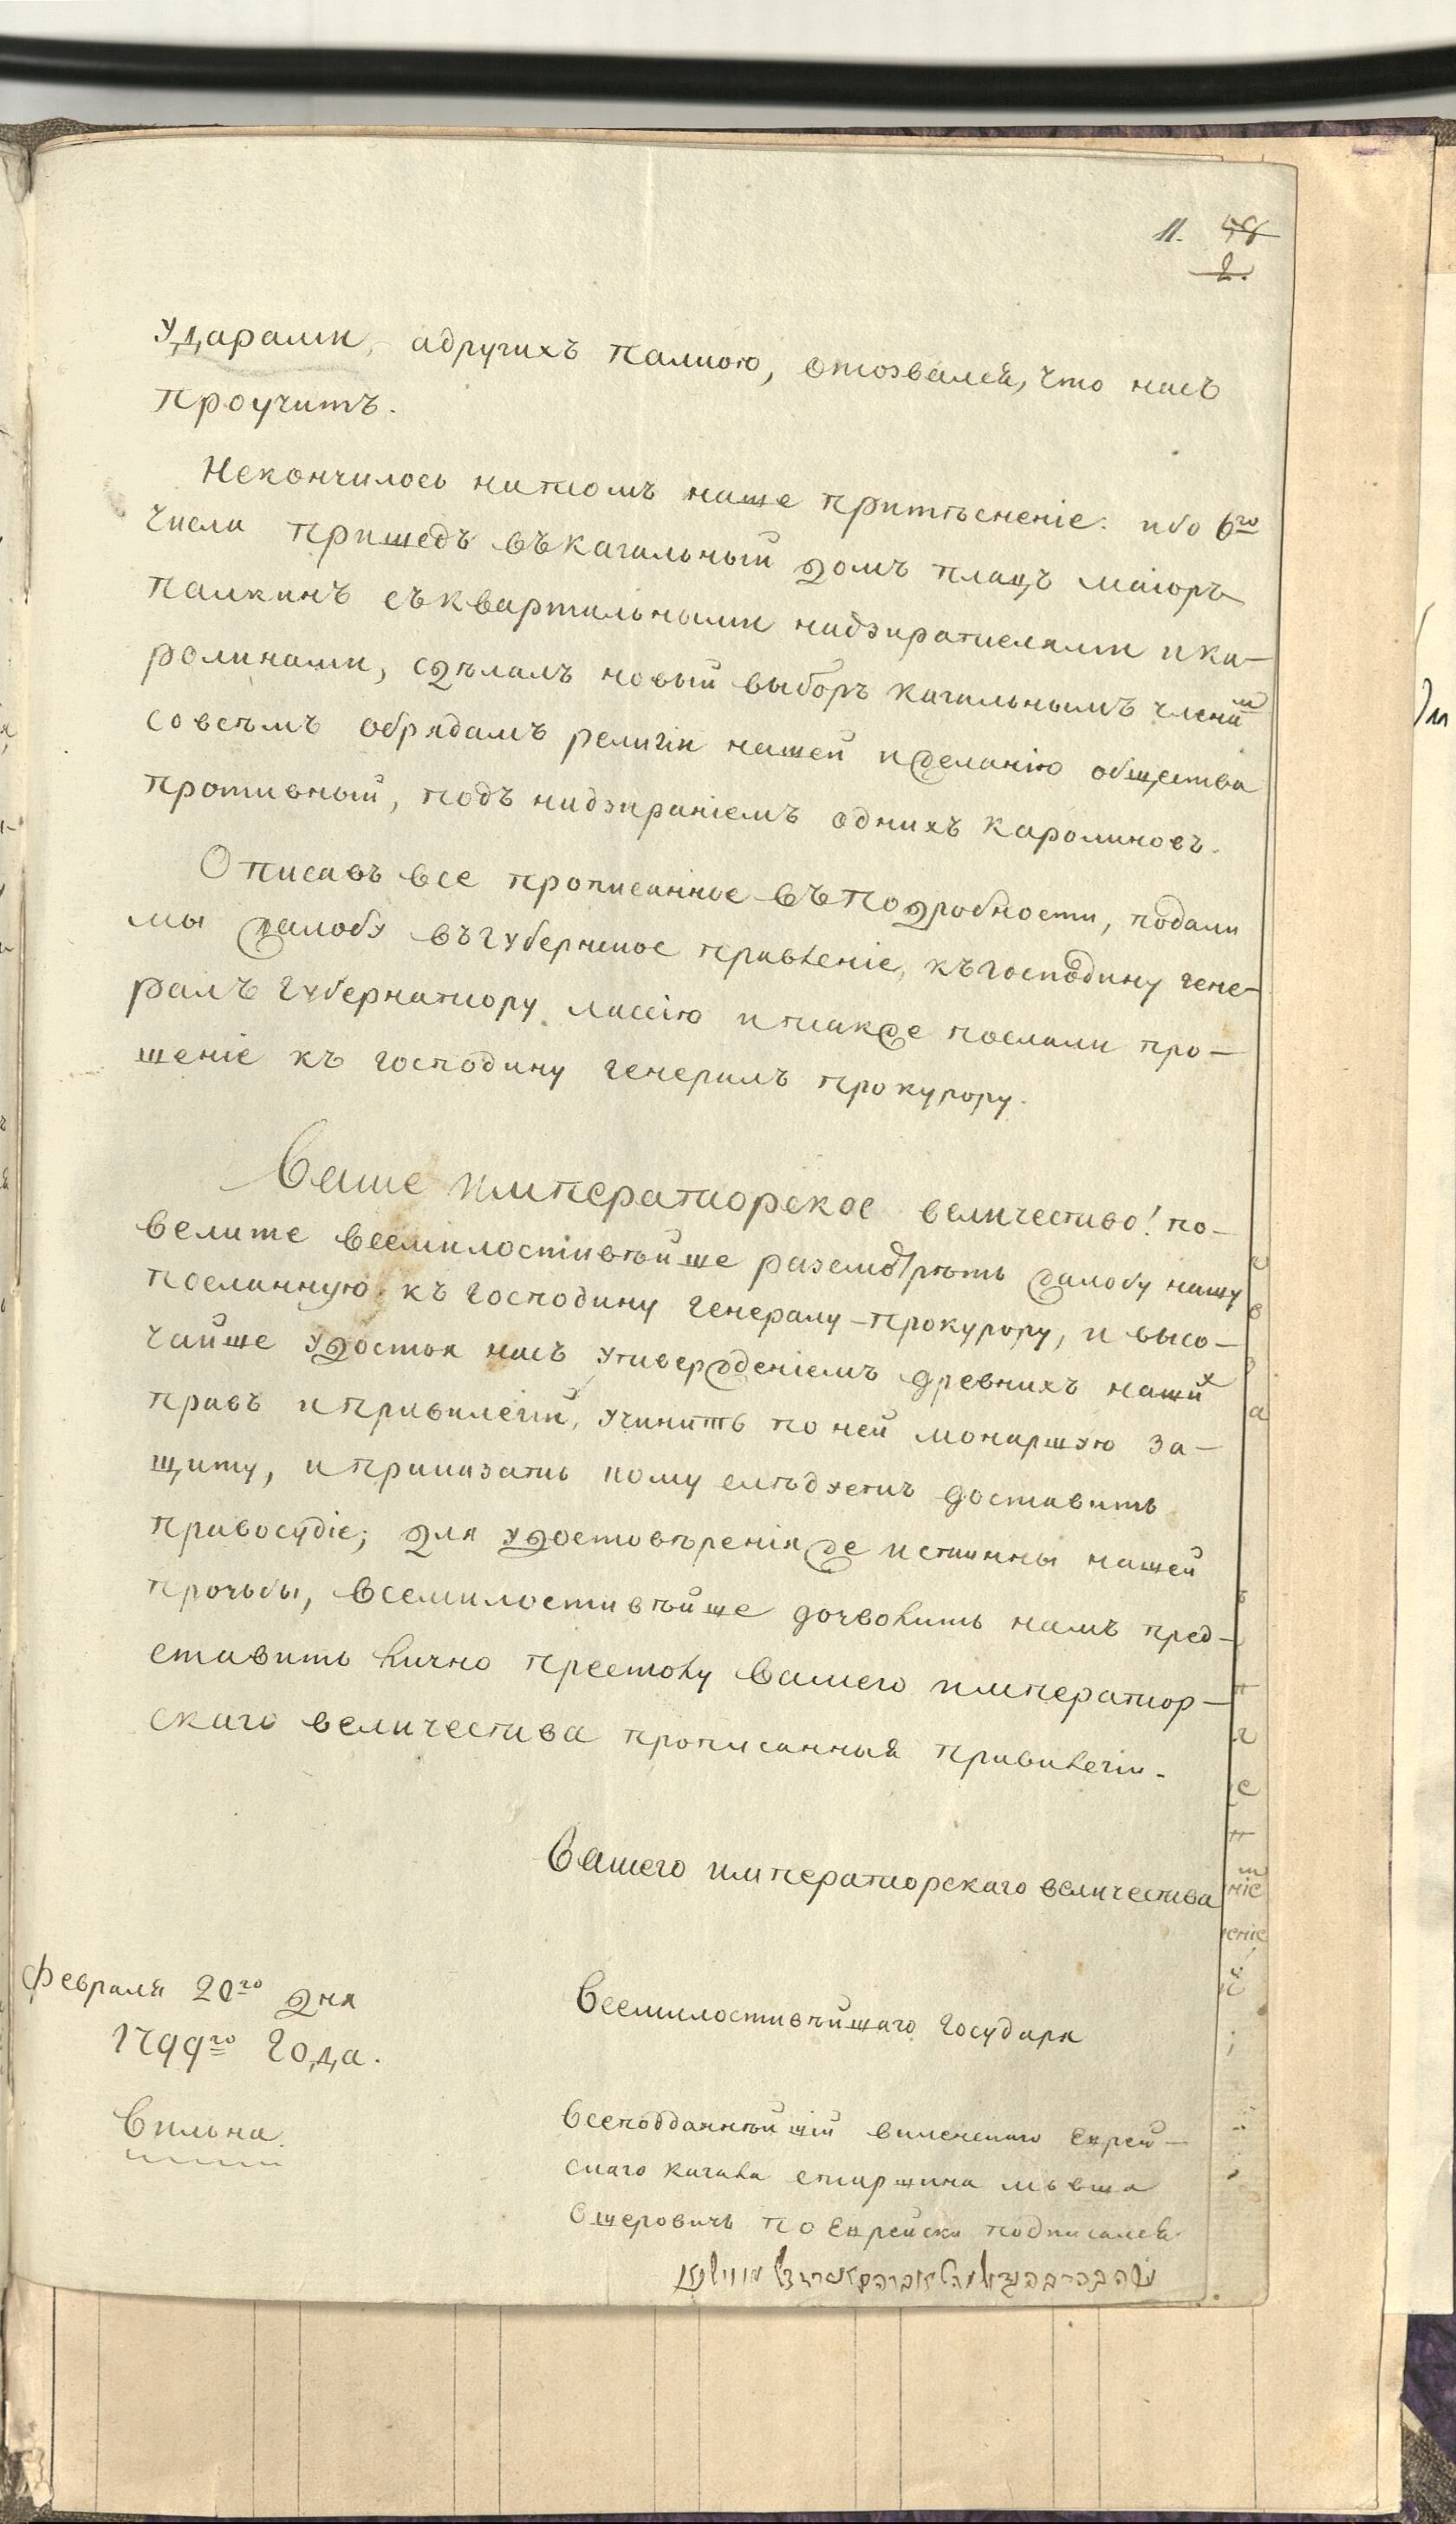 11. 48
2.
ударами, адругихъ палкою, отозвался, что насъ
проучитъ.
Некончилось натомъ наше притѣсненіе: ибо 6го
числа пришедъ въкагальный домъ плацъ маіоръ
палкинъ съквартальными надзирателями ика-
ролинами, сдѣлалъ новый выборъ кагальнымъ члена м
совсѣмъ обрядамъ религіи нашей ижеланію общества
противный, подъ надзираніемъ однихъ каролиновъ.
Описавъ все прописанное въподробности, подали
мы жалобу въгубернское правленіе, къгосподину гене-
ралъ губернатору лассію итакже послали про-
шеніе къ господину генералъ прокурору.
Ваше императорское величество! по-
велите всемилостивѣйше разсмотрѣть жалобу нашу
посланную къ господину генералу-прокурору, и высо-
чайше удостоя насъ утвержденіемъ древнихъ наших
правъ ипривилегій, учинить по ней монаршую за-
щиту, иприказать кому слѣдуетъ доставить
правосудіе; для удостовѣренія же истинны нашей
прозьбы, всемилостивѣйше дозволить намъ пред-
ставить лично престолу вашего император-
скаго величества прописанныя привилегіи.
Вашего императорскаго величества
Февраля 20го дня
1799го Года.
Вильна.
Всемилостивѣйшаго государя
всеподданнѣйшій виленскаго еврей-
скаго кагала старшина мовша
Ошеровичъ по еврейски подписался